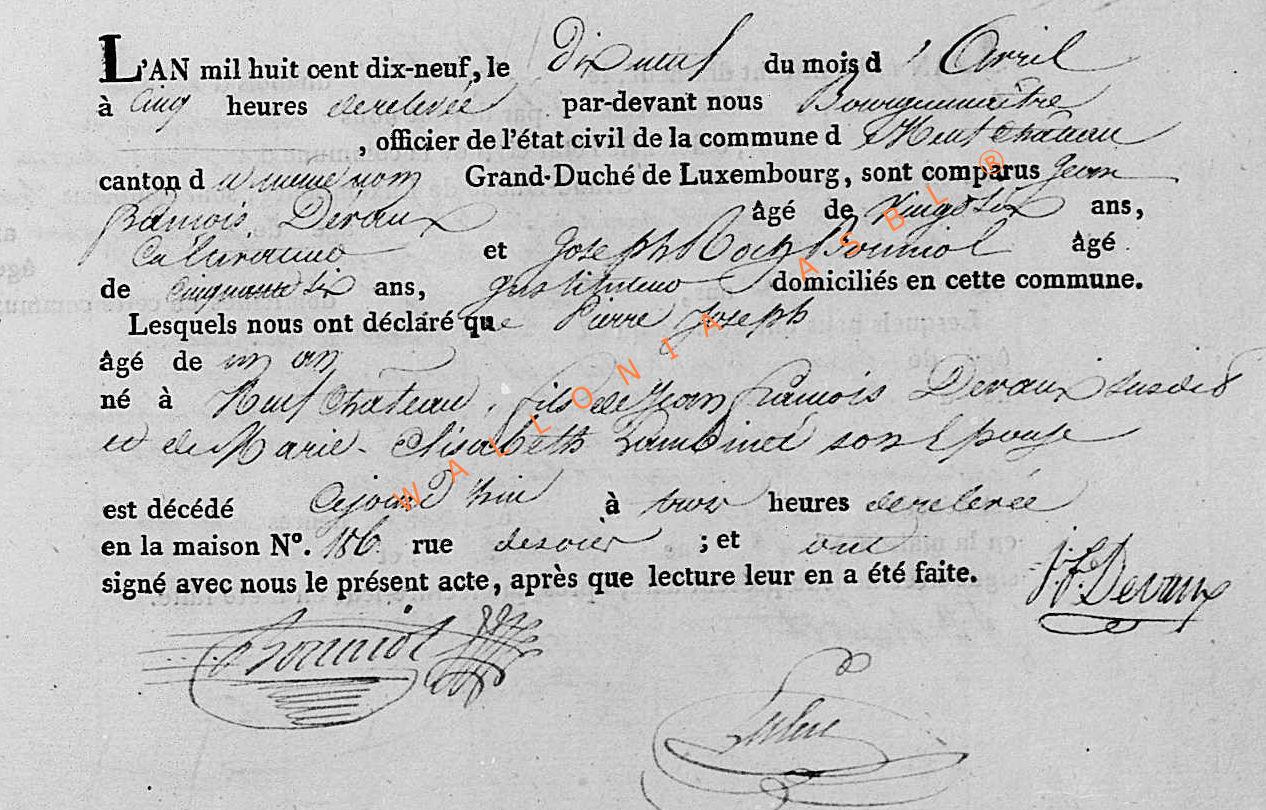 L'AN mil huit cent dix-neuf, le dix neuf du mois d' Avril
à Cinq heures de relevée par-devant nous Bourguemaître
, officier de l'état civil de la commune d e Neufchateau
canton d u meme nom Grand-Duché de Luxembourg, sont comparus Jean
François Devaux âgé de Vingt Six ans,
et Joseph Roch Bonniol âgé
de Cinquante Six ans, Instituteur domiciliés en cette commune.
Lesquels nous ont déclaré que Pierre Joseph
âgé de un an
né à Neufchateau, fils de Jean François Devaux susdit
et de Marie-Elisabeth Lambinet son Epouse
est décédé Cejourd'hui à trois heures de relevée
en la maison N°. 186 rue ; et ont
signé avec nous le présent acte, après que lecture leur en a été faite.
J. F. Devaux
Bonniol
WALLONIA ASBL ®